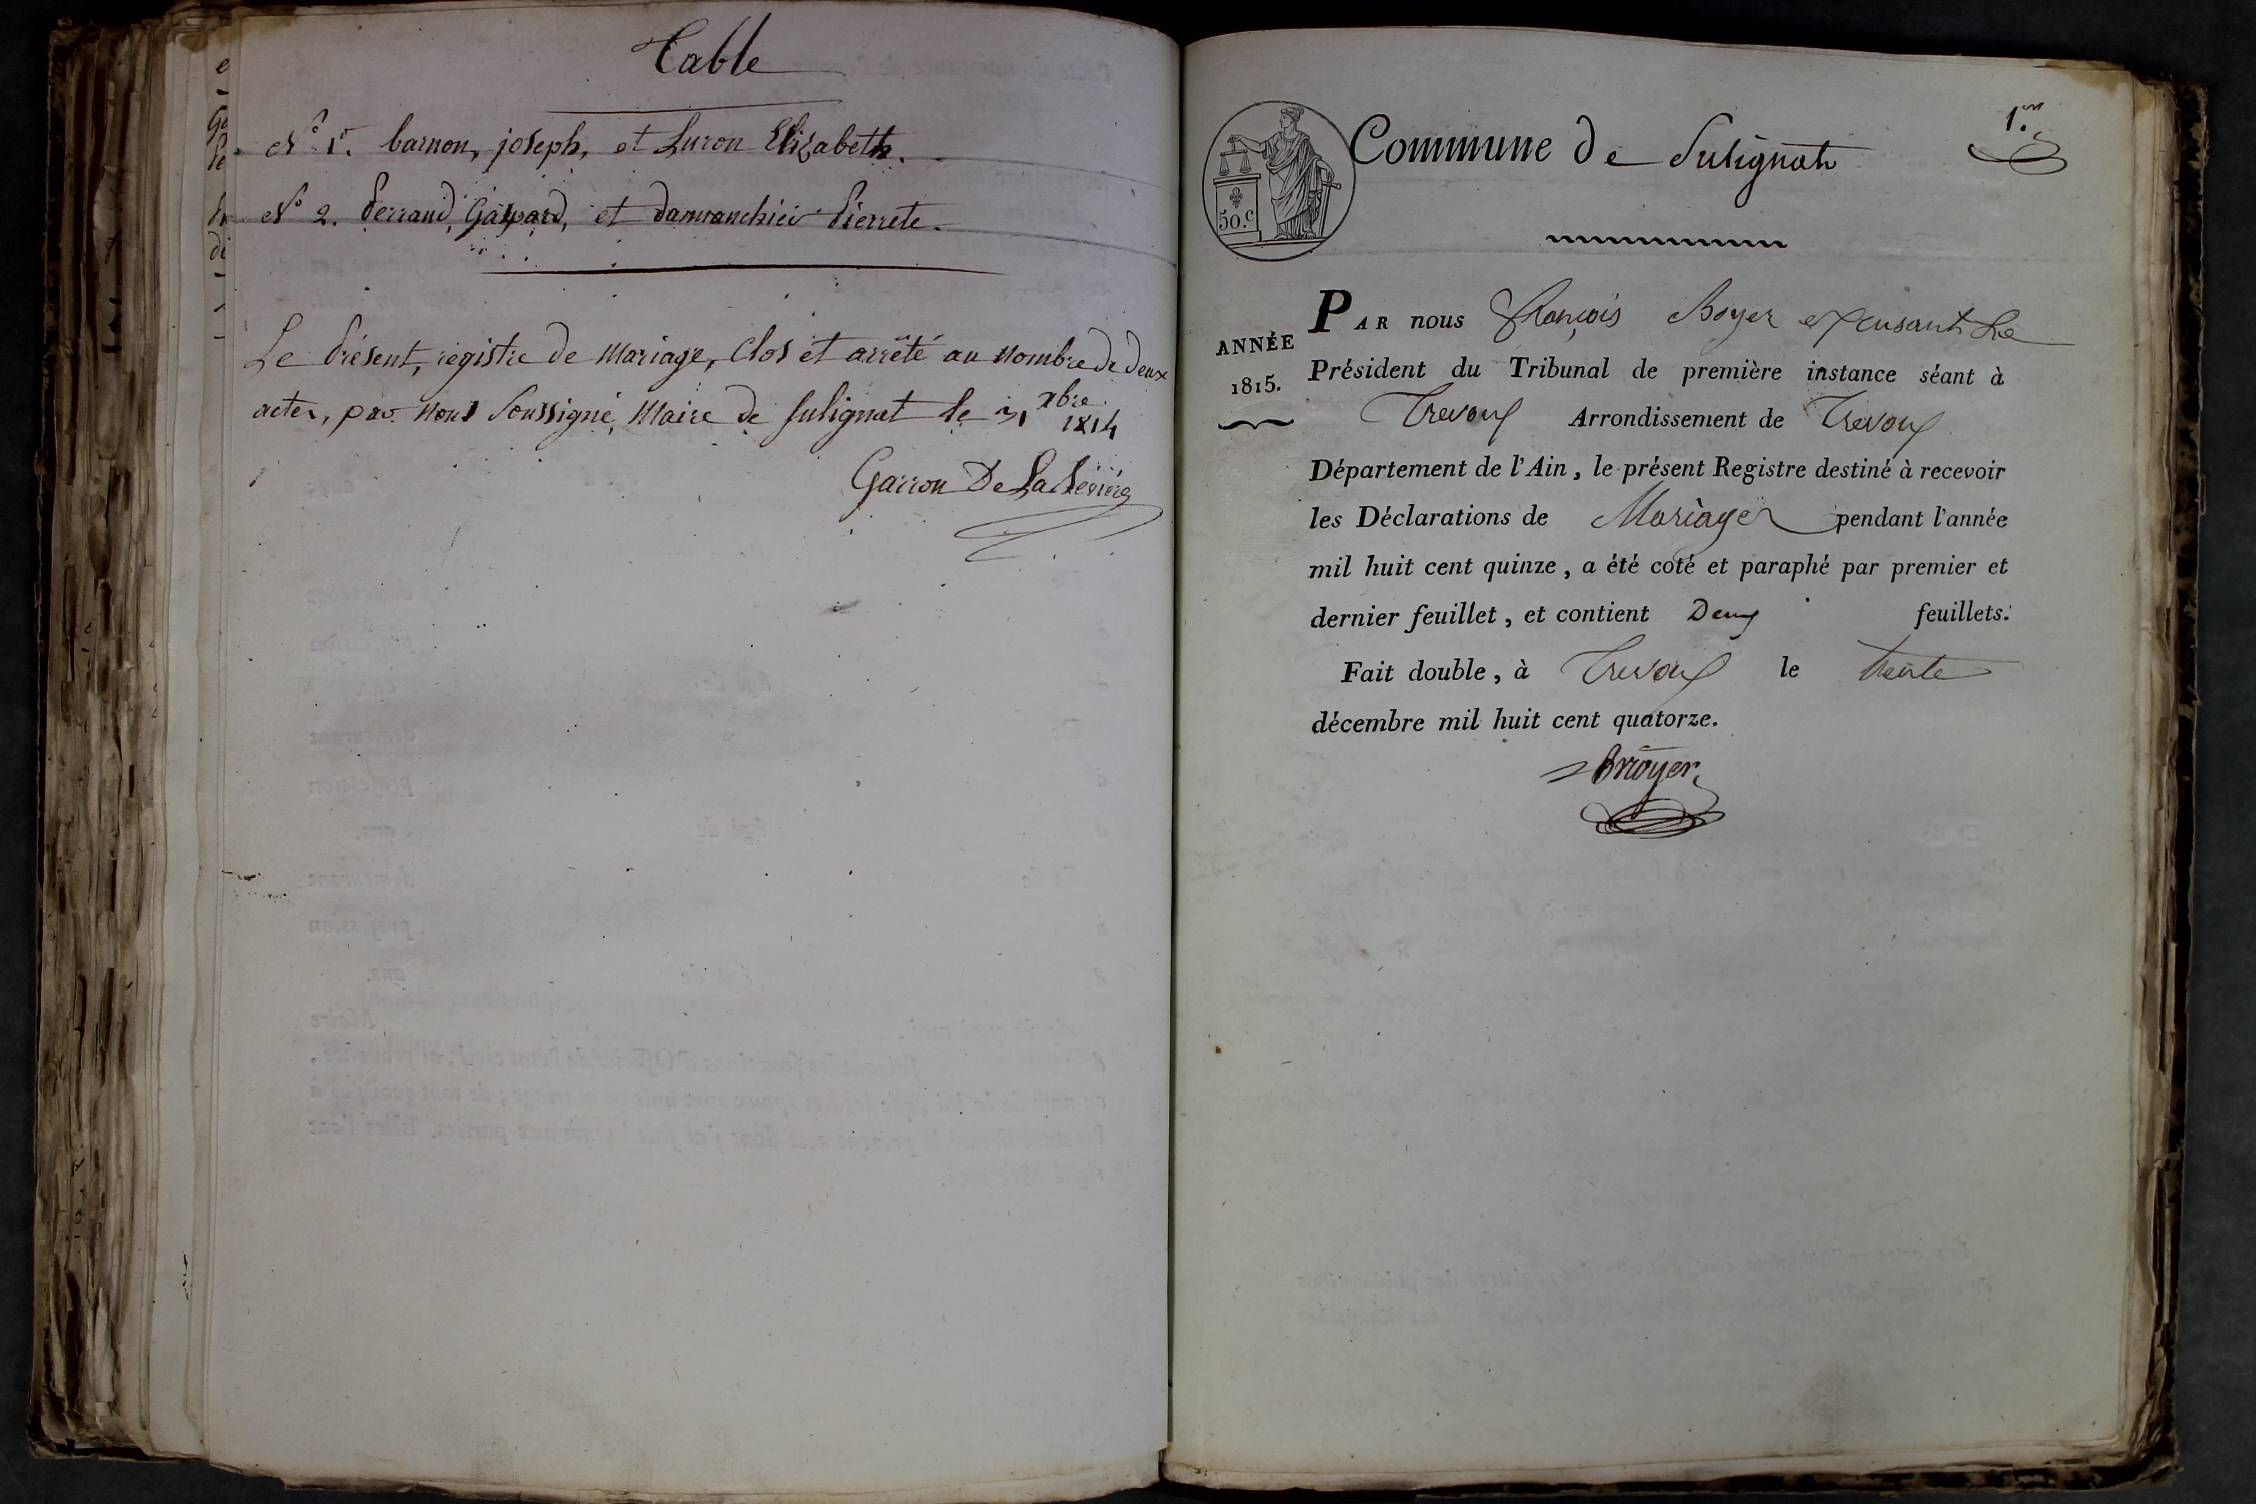 Table
N.º 1.er barnon, joseph, et Luron Elizabeth.
Nº 2. Perraud, Gaspard, et damranchier Pierrete.
Le Présent, registre de Mariage, Clos et arrêté au Nombre de deux
actes, par Nous Soussigné, Maire de Sulignat le 31 xbre 1814
Garron De La Bévière
1.er
Commune de Sulignat
50.c
ANNÉE
1815.
PAR nous François Boyer Le
Président du Tribunal de première instance séant à
Trevoux Arrondissement de Trevoux
Département de l'Ain, le présent Registre destiné à recevoir
les Déclarations de Mariages pendant l'année
mil huit cent quinze, a été coté et paraphé par premier et
dernier feuillet, et contient Deux feuillets.
Fait double, à Trevoux le trente
décembre mil huit cent quatorze.